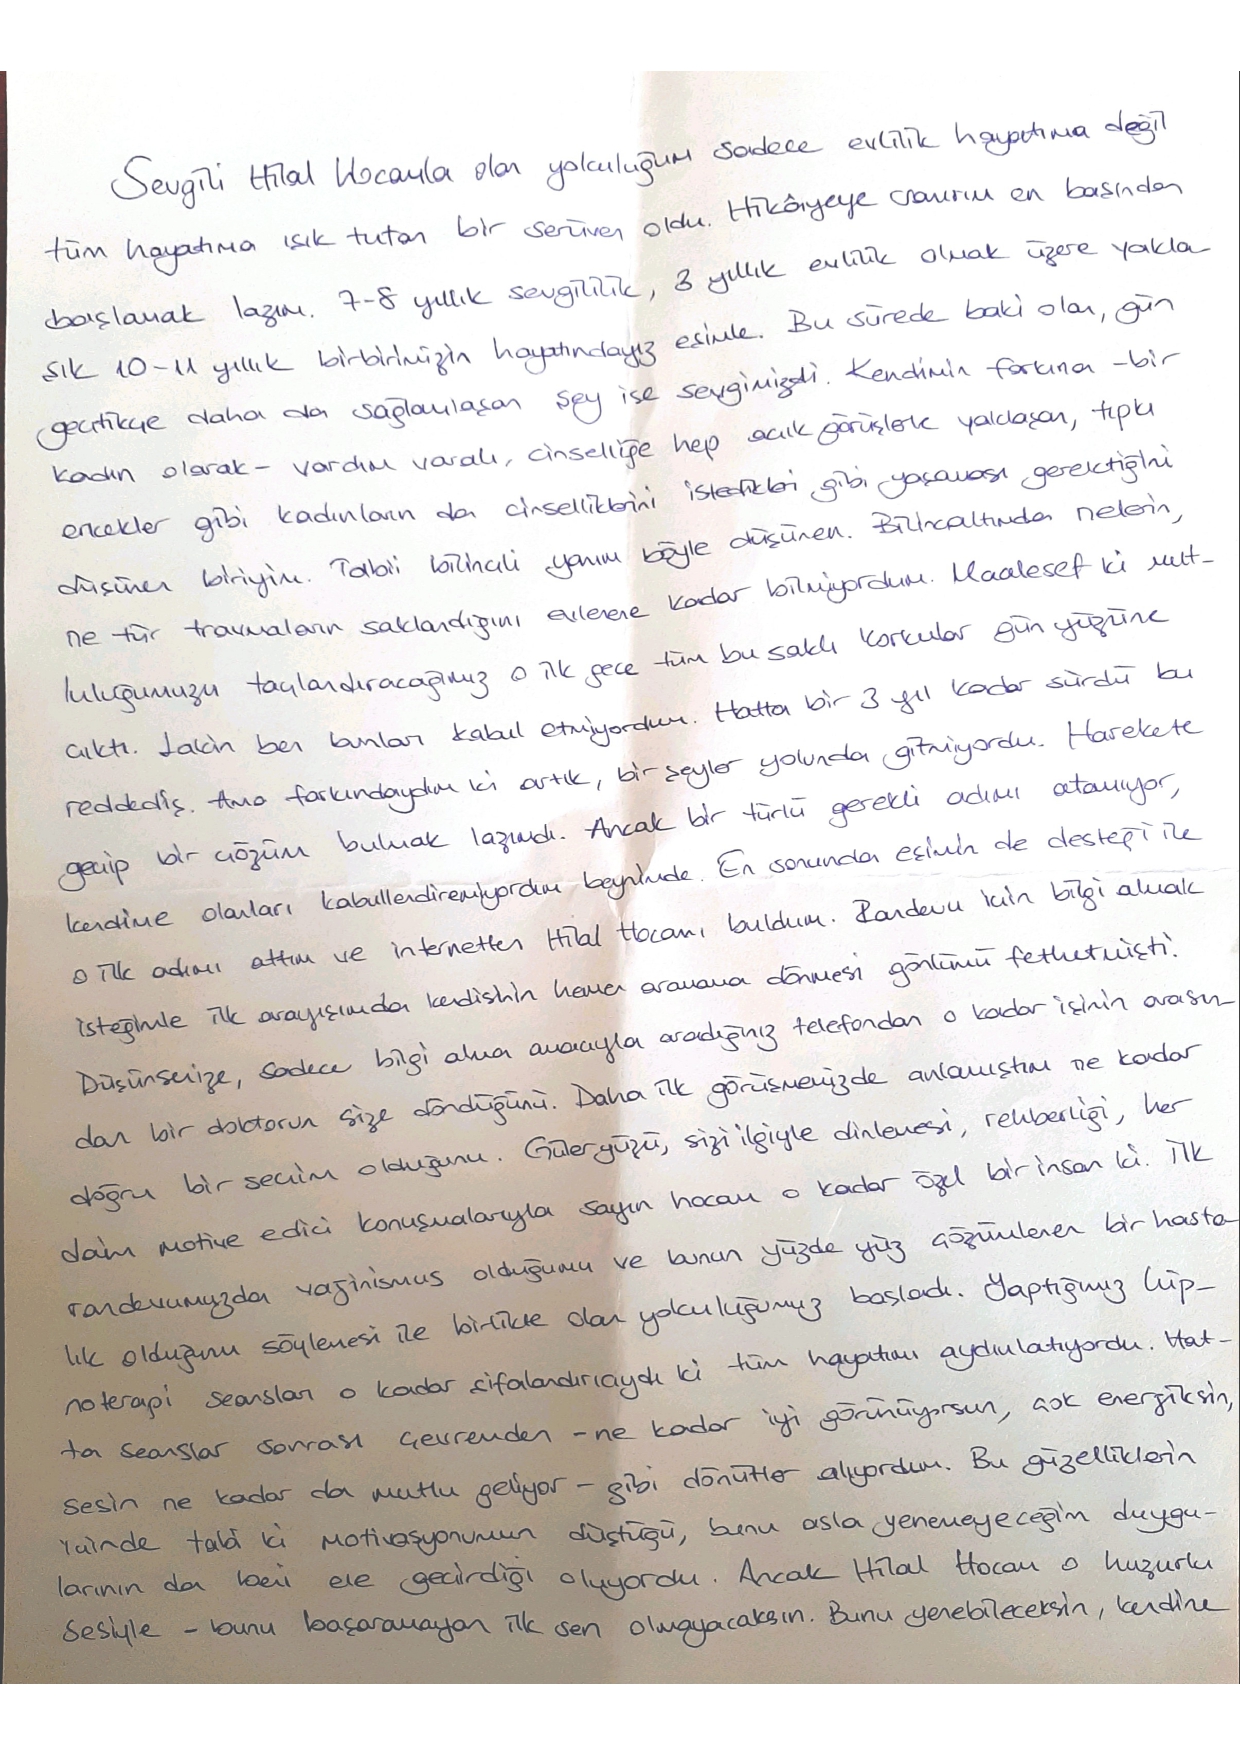 Sevgili Hilal Hocamla olan yolculuğum sadece evlilik hayatıma değil
tüm hayatıma ışık tutan bir serüven oldu. Hikâyeye sanırım en başından
başlamak lazım. 7-8 yıllık sevgililik, 3 yıllık evlilik olmak üzere yakla-
şık 10-11 yıllık birbirimizin hayatındayız eşimle. Bu sürede baki olan, gün
geçtikçe daha da sağlamlaşan şey ise sevgimizdi. Kendimin farkına -bir
kadın olarak- vardım varalı, cinselliğe hep açık görüşlerle yaklaşan, tıpkı
erkekler gibi kadınların da cinselliklerini istedikleri gibi yaşaması gerektiğini
düşünen biriyim. Tabii bilinçli yanım böyle düşünen. Bilinçaltımda nelerin,
ne tür travmaların saklandığını evlenene kadar bilmiyordum. Maalesef ki mut-
luluğumuzu taçlandıracağımız o ilk gece tüm bu saklı korkular gün yüzüne
çıktı. Lakin ben bunları kabul etmiyordum. Hatta bir 3 yıl kadar sürdü bu
reddediş. Ama farkındaydım ki artık, bir şeyler yolunda gitmiyordu. Harekete
geçip bir çözüm bulmak lazımdı. Ancak bir türlü gerekli adımı atamıyor,
kendime olanları kabullendiremiyordum beynimde. En sonunda eşimin de desteği ile
o ilk adımı attım ve internetten Hilal Hocamı buldum. Randevu için bilgi almak
isteğimle ilk arayışımda kendisinin hemen aramama dönmesi gönlümü fethetmişti.
Düşünsenize, sadece bilgi alma amacıyla aradığınız telefondan o kadar işinin arasın-
dan bir doktorun size döndüğünü. Daha ilk görüşmemizde anlamıştım ne kadar
doğru bir seçim olduğunu. Güler yüzü, sizi ilgiyle dinlemesi, rehberliği, her
daim motive edici konuşmalarıyla sayın hocam o kadar özel bir insan ki. İlk
randevumuzda vajinismus olduğumu ve bunun yüzde yüz çözümlenen bir hasta-
lık olduğunu söylemesi ile birlikte olan yolculuğumuz başladı. Yaptığımız hip-
noterapi seansları o kadar şifalandırıcıydı ki tüm hayatımı aydınlatıyordu. Hat-
ta seanslar sonrası çevremden -ne kadar iyi görünüyorsun, çok enerjiksin,
sesin ne kadar da mutlu geliyor- gibi dönütler alıyordum. Bu güzelliklerin
içinde tabi ki motivasyonumun düştüğü, bunu asla yenemeyeceğim duygu-
larının da beni ele geçirdiği oluyordu. Ancak Hilal Hocam o huzurlu
sesiyle - bunu başaramayan ilk sen olmayacaksın. Bunu yenebileceksin, kendine